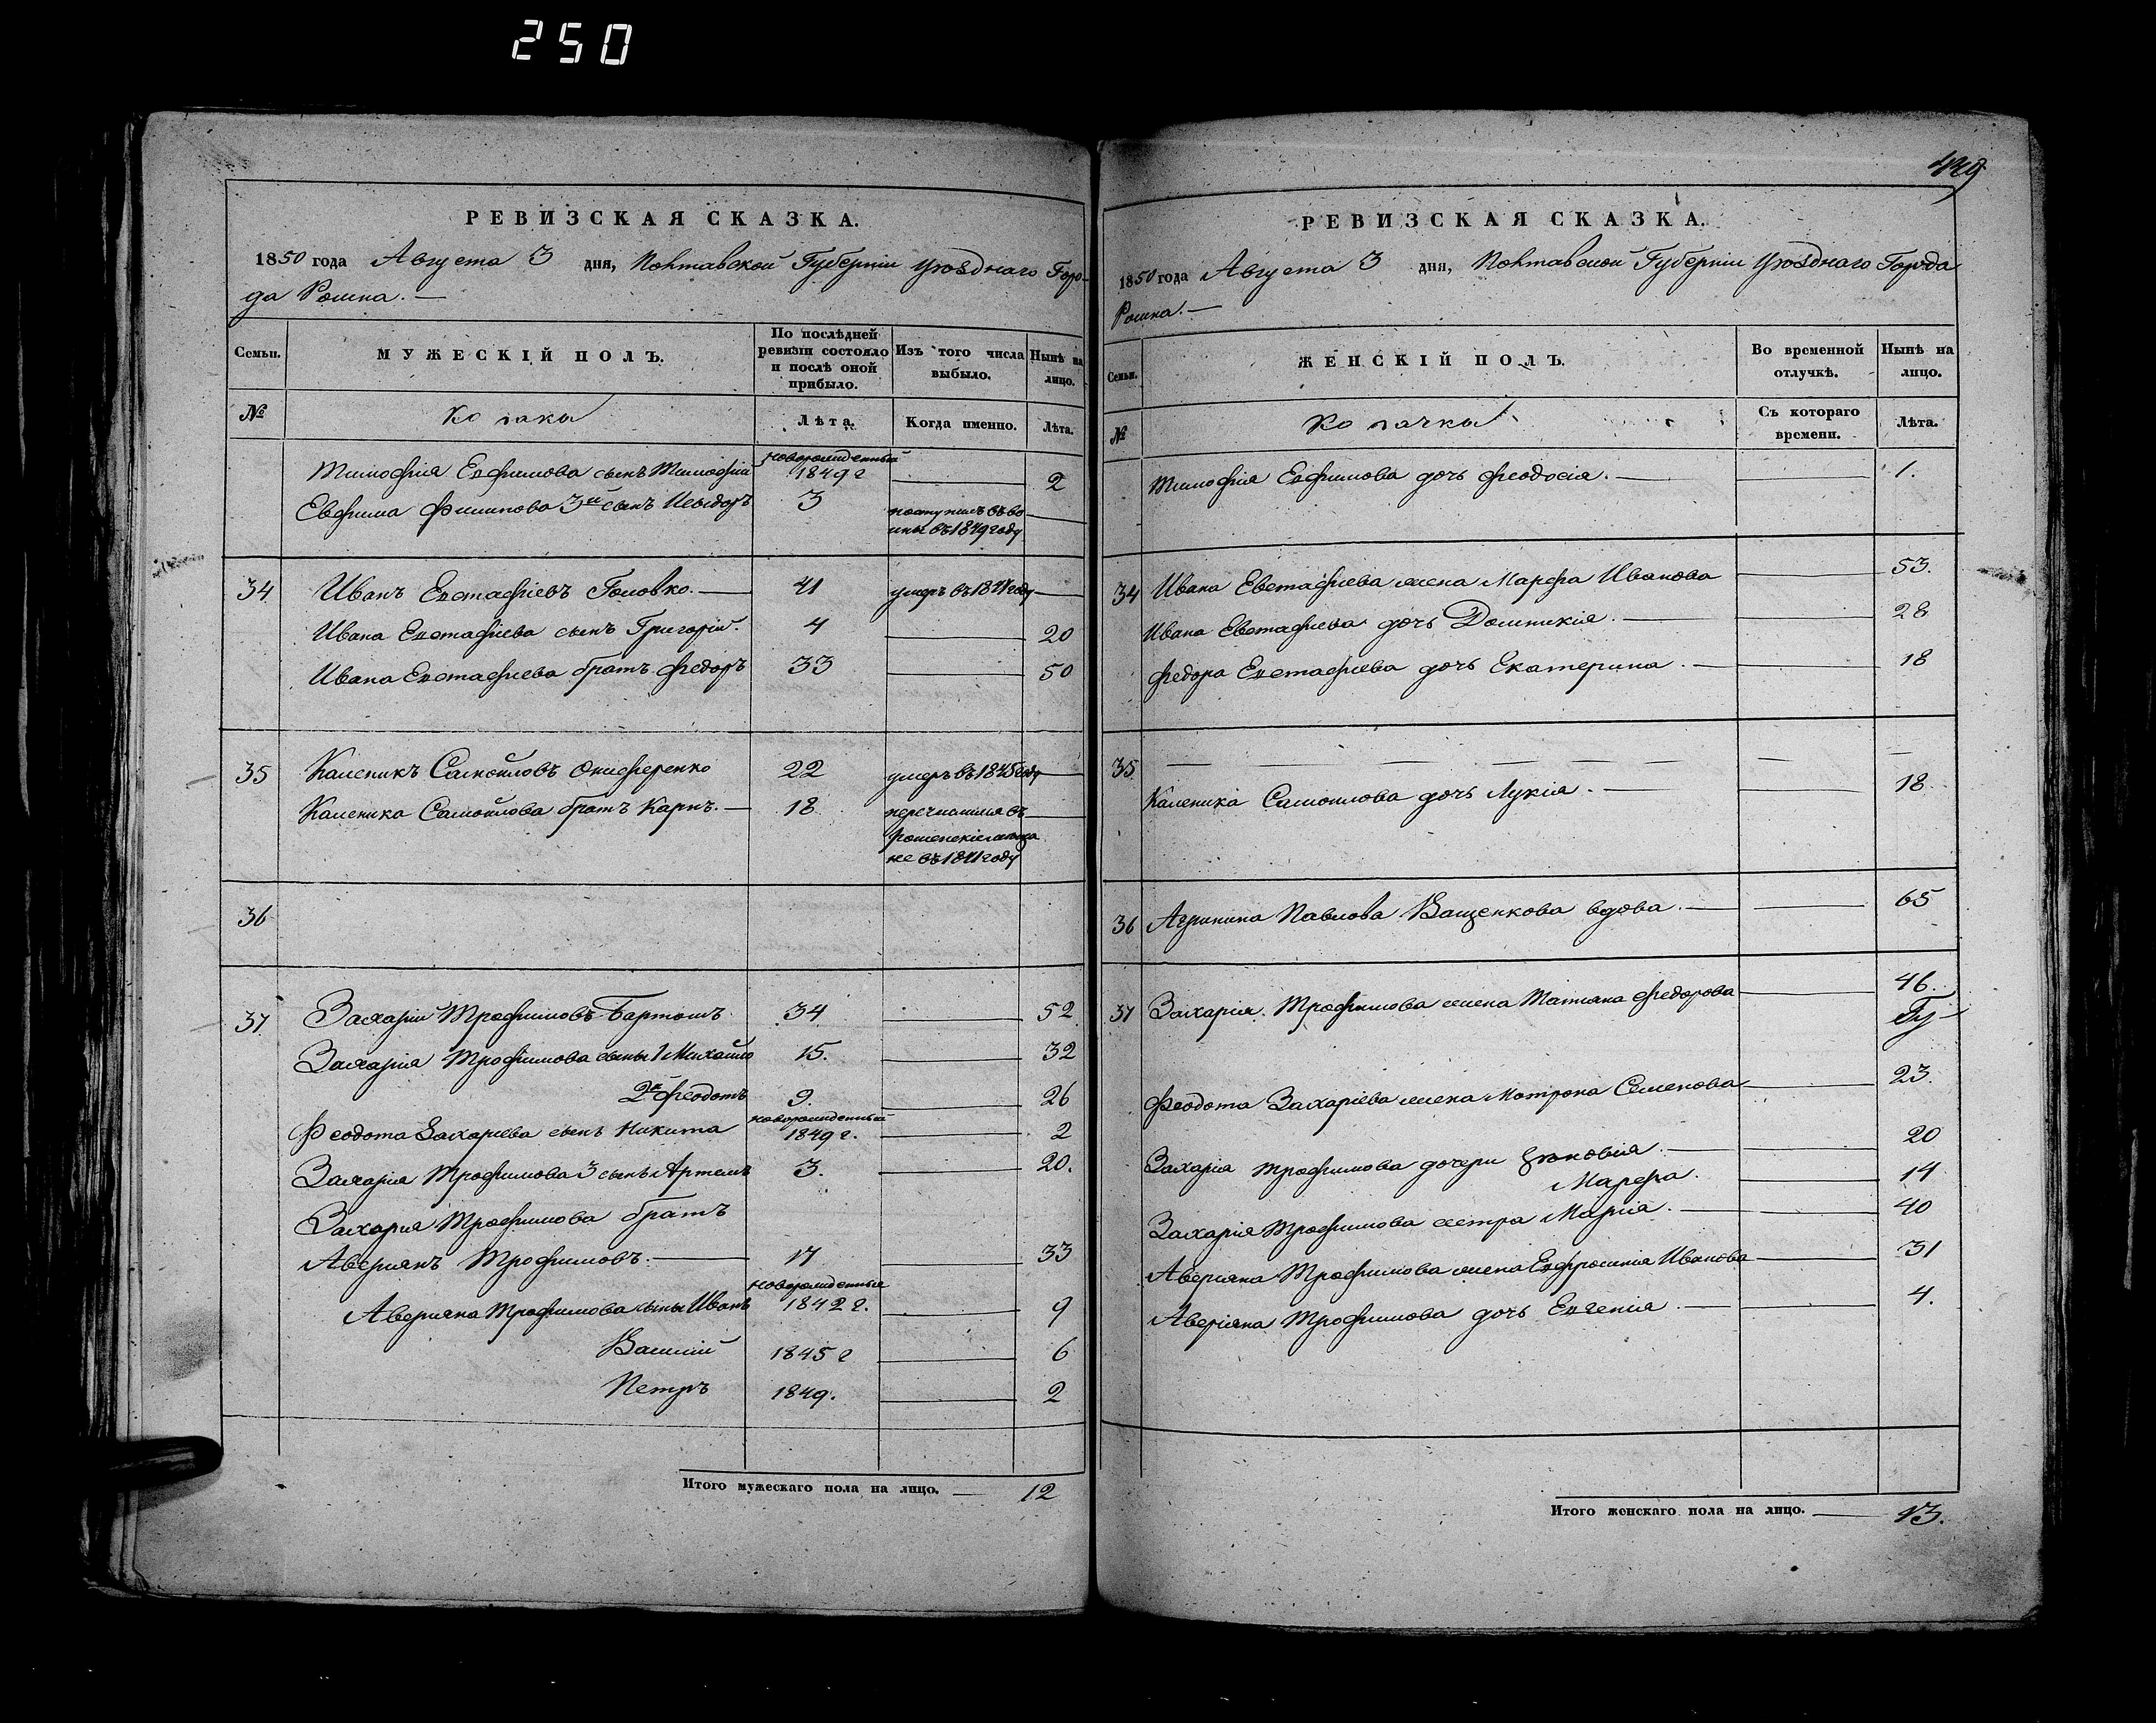 250
РЕВИЗСКАЯ СКАЗКА.
1850 года Августа 3 дня, Полтавской Губерніи Уѣзднаго Горо-
да Ромна. —
Семьи. МУЖЕСКІЙ ПОЛЪ. По послѣдней ревизіи состояло и послѣ оной прибыло. Изъ того числа выбыло. Нынѣ на лицо.
№ Козаки Лѣта. Когда именно. Лѣта.
Тимофія Евфимова сынъ Тимофій новорожденный 1849 г — 2
Евфима Филипова 3й сынъ Исидоръ 3 поступилъ въ во
ины въ 1849 году —
34 Иванъ Евстафіевъ Головко. — 41 умеръ въ 1841 году —
Ивана Евстафіева сынъ Григорій. 4 — 20
Ивана Евстафіева братъ Федоръ 33 — 50
35 Каленикъ Самойловъ Онисференко 22 умеръ въ 1845 году —
Каленика Самойлова братъ Карпъ. — 18 перечислился въ —
Роменскіе
не въ 1841 году
36
37 Захарій Трофимовъ Бартошъ 34 — 52
Захарія Трофимова сыны 1 Михайло 15. — 32
2й Феодотъ 9. — 26
Феодота Захаріева сынъ Никита новорожденный 1849 г. — 2
Захарія Трофимова 3 сынъ Артемъ 3. — 20.
Захарія Трофимова братъ
Аверіянъ Трофимовъ. — 17 — 33
Аверіяна Трофимова сыны Иванъ новорожденныя 1842 г. — 9
Василій 1845 г — 6
Петръ 1849. — 2
Итого мужескаго пола на лицо. — 12
РЕВИЗСКАЯ СКАЗКА.
1850 года Августа 3 дня, Полтавской Губерніи Уѣзднаго Города
Ромна. —
Семьи. ЖЕНСКІЙ ПОЛЪ. Во временной отлучкѣ. Нынѣ на лицо.
№ Козачки Съ котораго времени. Лѣта.
Тимофія Евфимова дочь Феодосія. — — 1.
34 Ивана Евстафіева жена Марфа Иванова — 53.
Ивана Евстафіева дочь Домникія. — — 28
Федора Евстафіева дочь Екатерина. — — 18
35 — — — — — — — — —
Каленика Самоилова дочь Лукія. — — 18
36 Агрипина Павлова Ващенкова вдова. — — 65
37 Захарія Трофимова жена Татіана Федорова — 46.
Феодота Захаріева жена Мотрона Семенова — 23.
Захарія Трофимова дочери Зѣновія. — — 20
Марфа. — 14
Захарія Трофимова сестра Марія. — — 40
Аверіяна Трофимова жена Евфросинія Иванова — 31
Аверіяна Трофимова дочь Евгенія. — — 4.
Итого женскаго пола на лицо. — 13.